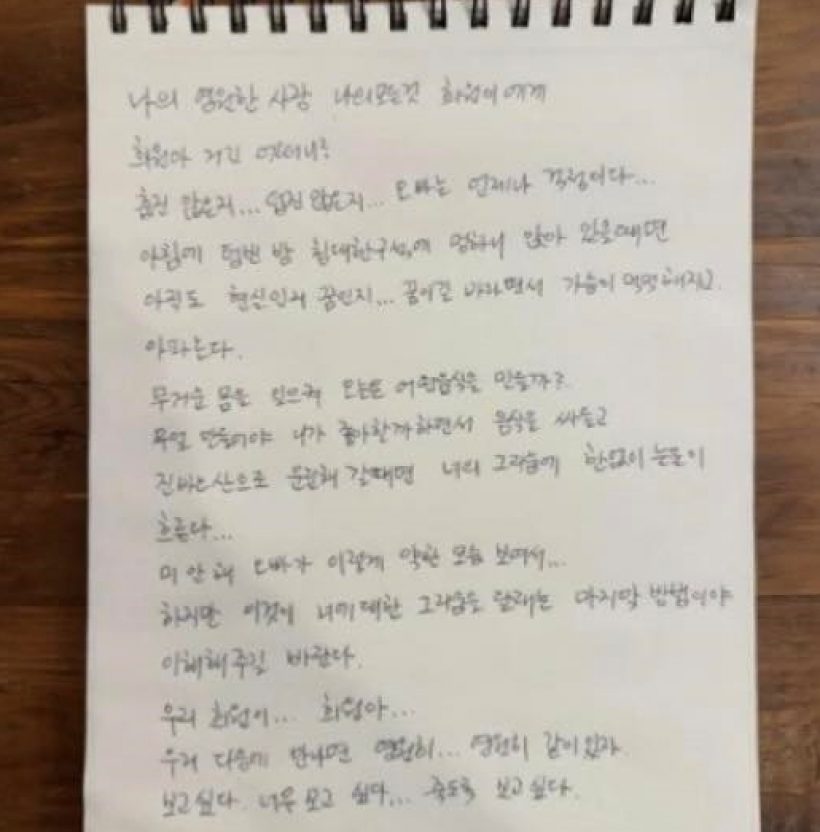 나의 영원한 사랑 나의 모든것 희원이에게
희원아 거긴 어떠니?
춥진 않은지... 덥진 않은지... 오빠는 언제나 걱정이다...
아침에 텅빈 방 침대한구석에 멍하니 앉아 있을때면
아직도 현실인지 꿈인지... 꿈이길 바라면서 가슴이 먹먹해지고
아파온다.
무거운 몸을 일으켜 오늘은 어떤음식을 만들까?
무얼 만들어야 너가 좋아할까하면서 음식을 싸들고
산으로 운전해 갈때면 너의 그리움에 한없이 눈물이
흐른다...
미안해 오빠가 이렇게 약한 모습 보여서...
하지만 이것이 너에대한 그리움을 달래는 마지막 방법이야
이해해주길 바란다.
우리 희원이... 희원아...
우리 다음에 만나면 영원히... 영원히 같이있자.
보고싶다 너무 보고 싶다... 죽도록 보고싶다.